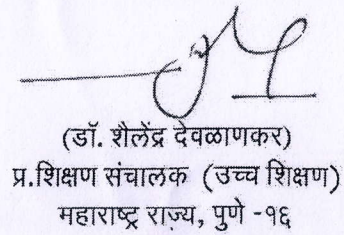 (डॉ. शैलेंद्र देवळाणकर)
प्र.शिक्षण संचालक (उच्च शिक्षण)
महाराष्ट्र राज्य, पुणे -१६